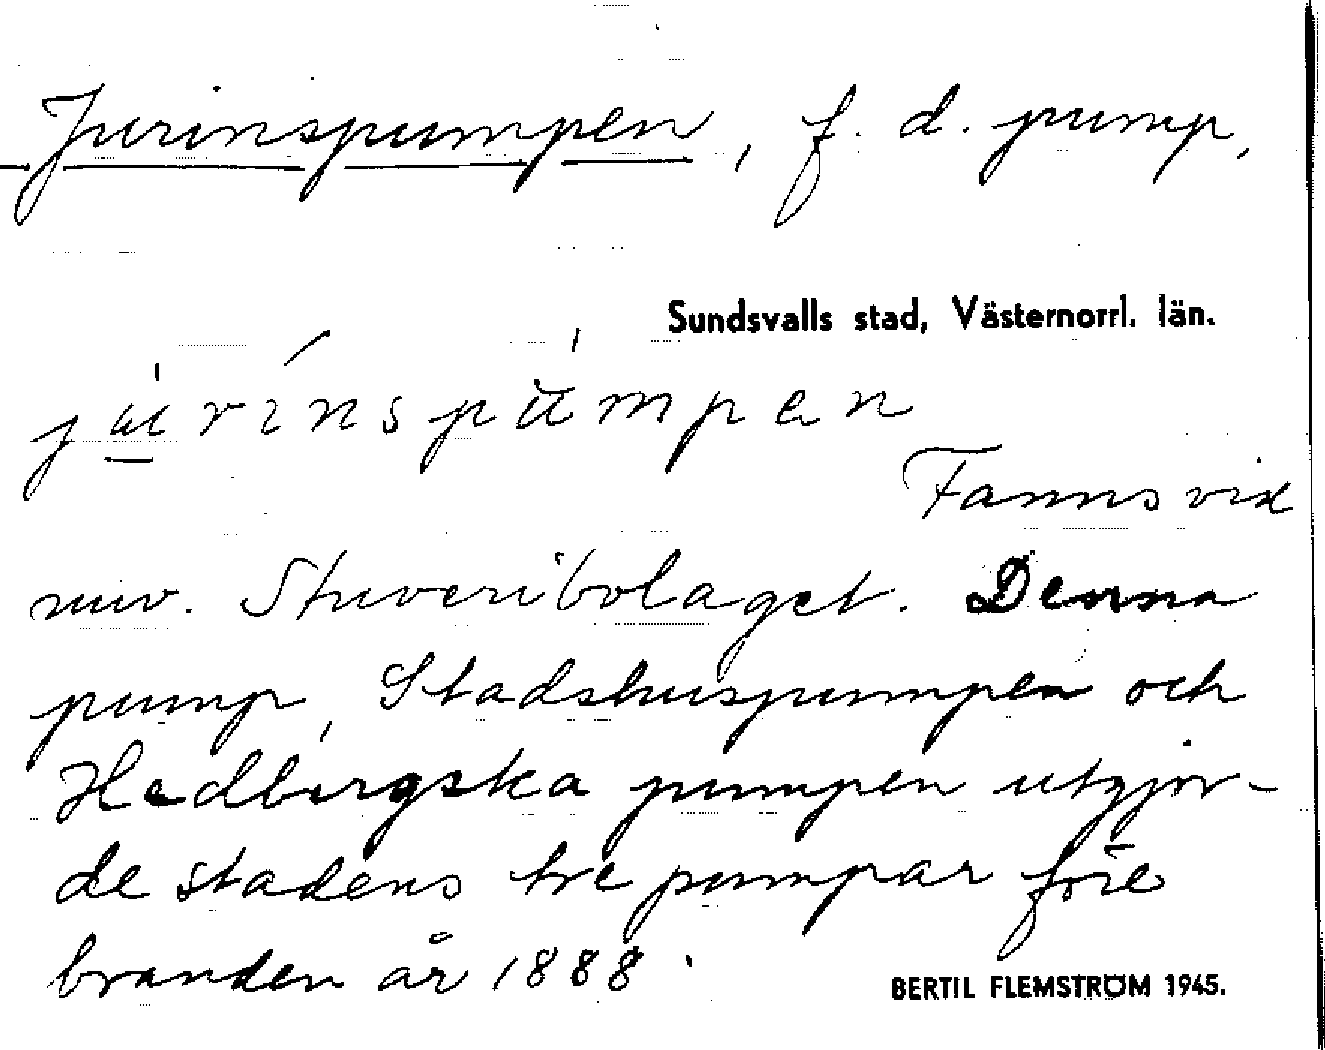 Jurinspumpen, f. d. pump,
Sundsvalls stad, Västernorrl. län.
jurinspumpen
Fanns vid
nuv. Stuveribolaget. Denna
pump, Stadshuspumpen och
Hedbergska pumpen utgjor-
de stadens tre pumpar före
branden år 1888.
BERTIL FLEMSTRÖM 1945.